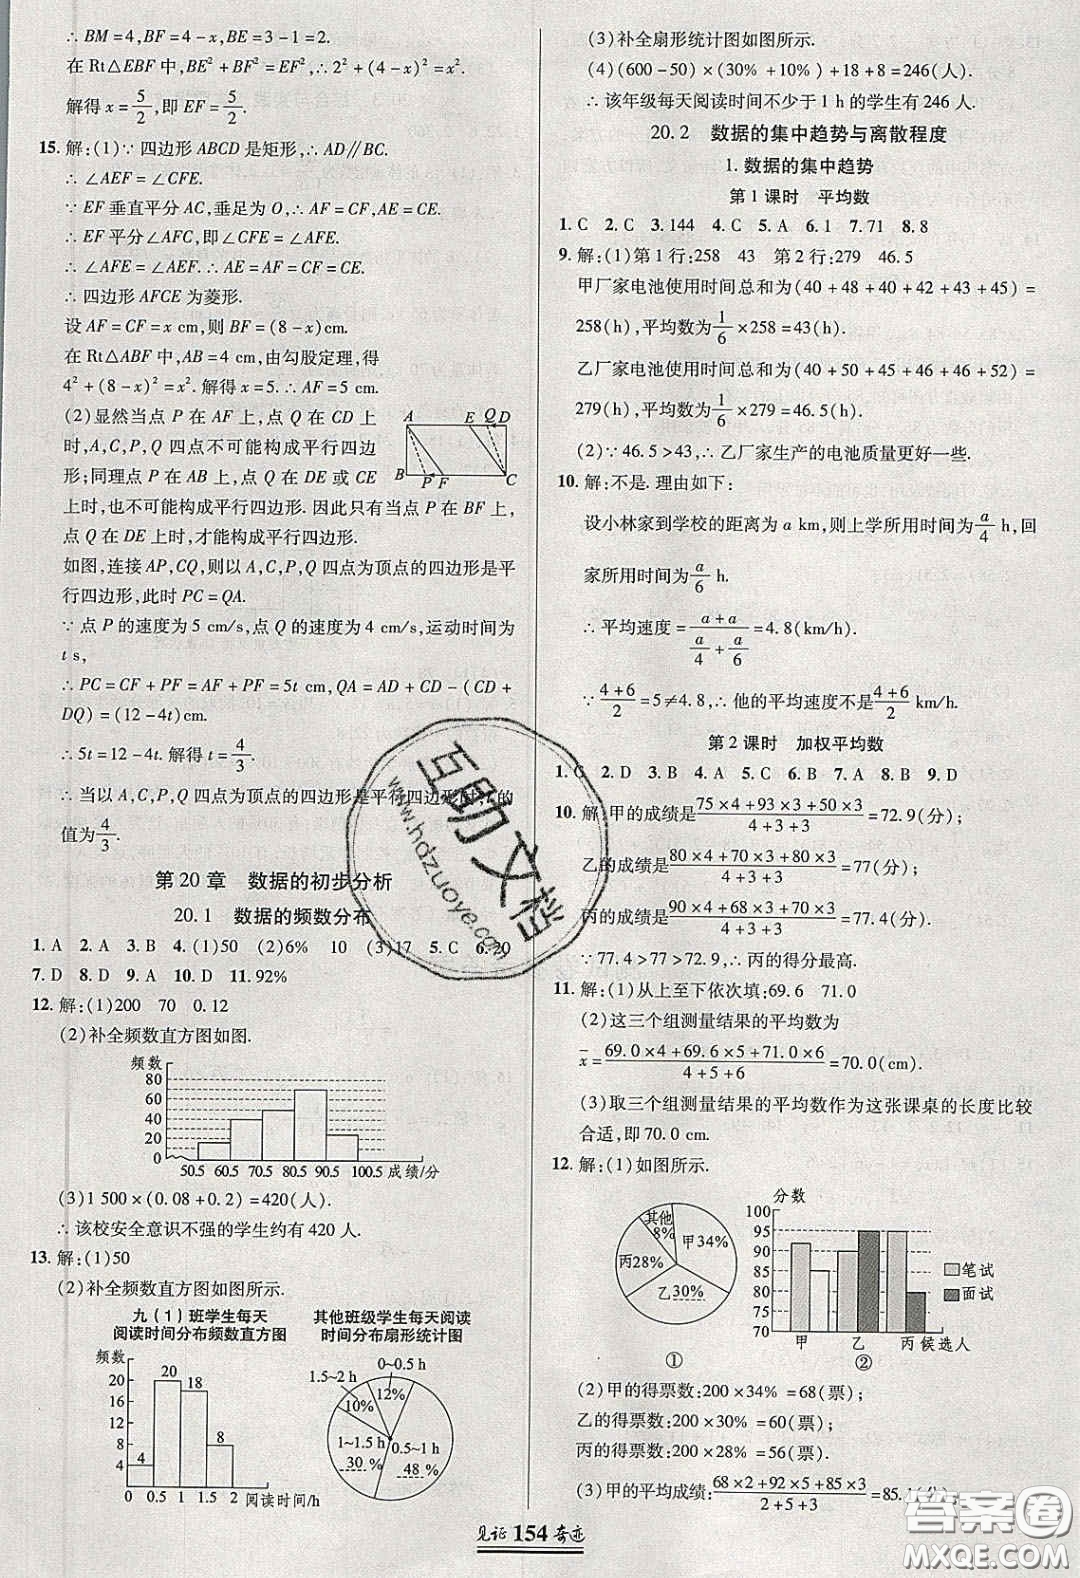 ∴ BM=4,BF=4-x,BE=3-1=2.
在 Rt△EBF 中,BE²+BF²=EF²,∴2²+(4-x)²=x².
解得 x=5/2,即 EF=5/2.
15. 解:(1)∵ 四边形 ABCD 是矩形,∴AD∥BC.
∴ ∠AEF=∠CFE.
∵ EF 垂直平分 AC,垂足为 O,
∴ EF 平分∠AFC,即∠CFE=∠AFE.
∴ ∠AFE=∠AEF.∴AE=AF=CF=CE.
∴ 四边形 AFCE 为菱形.
设 AF=CF=x cm,则 BF=(8-x)cm.
在 Rt△ABF 中,AB=4 cm,由勾股定理,得
4²+(8-x)²=x². 解得 x=5.∴AF=5 cm.
(2)显然当点 P 在 AF 上,点 Q 在 CD 上
时,A,C,P,Q 四点不可能构成平行四边
形;同理点 P 在 AB 上,点 Q 在 DE 或 CE
上时,也不可能构成平行四边形. 因此只有当点 P 在 BF 上,
点 Q 在 DE 上时,才能构成平行四边形.
A E Q D
B P F C
如图,连接 AP,CQ,则以 A,C,P,Q 四点为顶点的四边形是平
行四边形,此时 PC=QA.
∵ 点 P 的速度为 5 cm/s,点 Q 的速度为 4 cm/s,运动时间为
t s,
∴ PC=CF+PF=AF+PF=5t cm,QA=AD+CD-(CD+
DQ)=(12-4t)cm.
∴ 5t=12-4t. 解得 t=4/3.
∴ 当以 A,C,P,Q 四点为顶点的四边形是平行四边形时,t 的
值为4/3.
第 20 章 数据的初步分析
20.1 数据的频数分布
1. A 2. A 3. B 4. (1)50 (2)6% 10 (3)17 5. C 6. 20
7. D 8. D 9. A 10. D 11. 92%
12. 解:(1)200 70 0.12
(2)补全频数直方图如图.
频数
80
70
60
50
40
30
20
10
0
50.5 60.5 70.5 80.5 90.5 100.5 成绩/分
(3)1 500×(0.08+0.2)=420(人).
∴ 该校安全意识不强的学生约有 420 人.
13. 解:(1)50
(2)补全频数直方图如图所示.
九(1)班学生每天
阅读时间分布频数直方图
频数
20
18
16
14
12
10
8
6
4
2
4 20 18 8
0 0.5 1 1.5 2 阅读时间/h
其他班级学生每天阅读
时间分布扇形统计图
0~0.5 h
1.5~2 h
12%
10%
1~1.5 h
30 %
0.5~1 h
48 %
(3)补全扇形统计图如图所示.
(4)(600-50)×(30%+10%)+18+8=246(人).
∴ 该年级每天阅读时间不少于 1 h 的学生有 246 人.
20.2 数据的集中趋势与离散程度
1. 数据的集中趋势
第 1 课时 平均数
1. C 2. C 3. 144 4. C 5. A 6. 1 7. 71 8. 8
9. 解:(1)第 1 行:258 43 第 2 行:279 46.5
甲厂家电池使用时间总和为(40+48+40+42+43+45)=
258(h),平均数为1/6×258=43(h).
乙厂家电池使用时间总和为(40+50+45+46+46+52)=
279(h),平均数为1/6×279=46.5(h).
(2)∵ 46.5>43,∴ 乙厂家生产的电池质量更好一些.
10. 解:不是. 理由如下:
设小林家到学校的距离为 a km,则上学所用时间为a/4 h,回
家所用时间为a/6 h.
∴ 平均速度=(a+a)/(a/4+a/6)=4.8(km/h).
∵(4+6)/2=5≠4.8,∴ 他的平均速度不是(4+6)/2 km/h.
第 2 课时 加权平均数
1. C 2. D 3. B 4. A 5. C 6. A 7. A 8. B 9. D
10. 解:甲的成绩是(75×4+93×3+50×3)/(4+3+3)=72.9(分);
乙的成绩是(80×4+70×3+80×3)/(4+3+3)=77(分);
丙的成绩是(90×4+68×3+70×3)/(4+3+3)=77.4(分).
∵77.4>77>72.9,∴ 丙的得分最高.
11. 解:(1)从上至下依次填:69.6 71.0
(2)这三个组测量结果的平均数为
x̄=(69.0×4+69.6×5+71.0×6)/(4+5+6)=70.0(cm).
(3)取三个组测量结果的平均数作为这张课桌的长度比较
合适,即 70.0 cm.
12. 解:(1)如图所示.
其他
8%
甲34%
丙28%
乙30%
①
分数
100
95
90
85
80
75
70
甲 乙 丙 候选人
笔试
面试
②
(2)甲的得票数:200×34%=68(票);
乙的得票数:200×30%=60(票);
丙的得票数:200×28%=56(票).
(3)甲的平均成绩:(68×2+92×5+85×3)/(2+5+3)=85.1(分);
见证 154 奇迹
互助文档
www.hdzuoye.com
答案圈
MXQE.COM